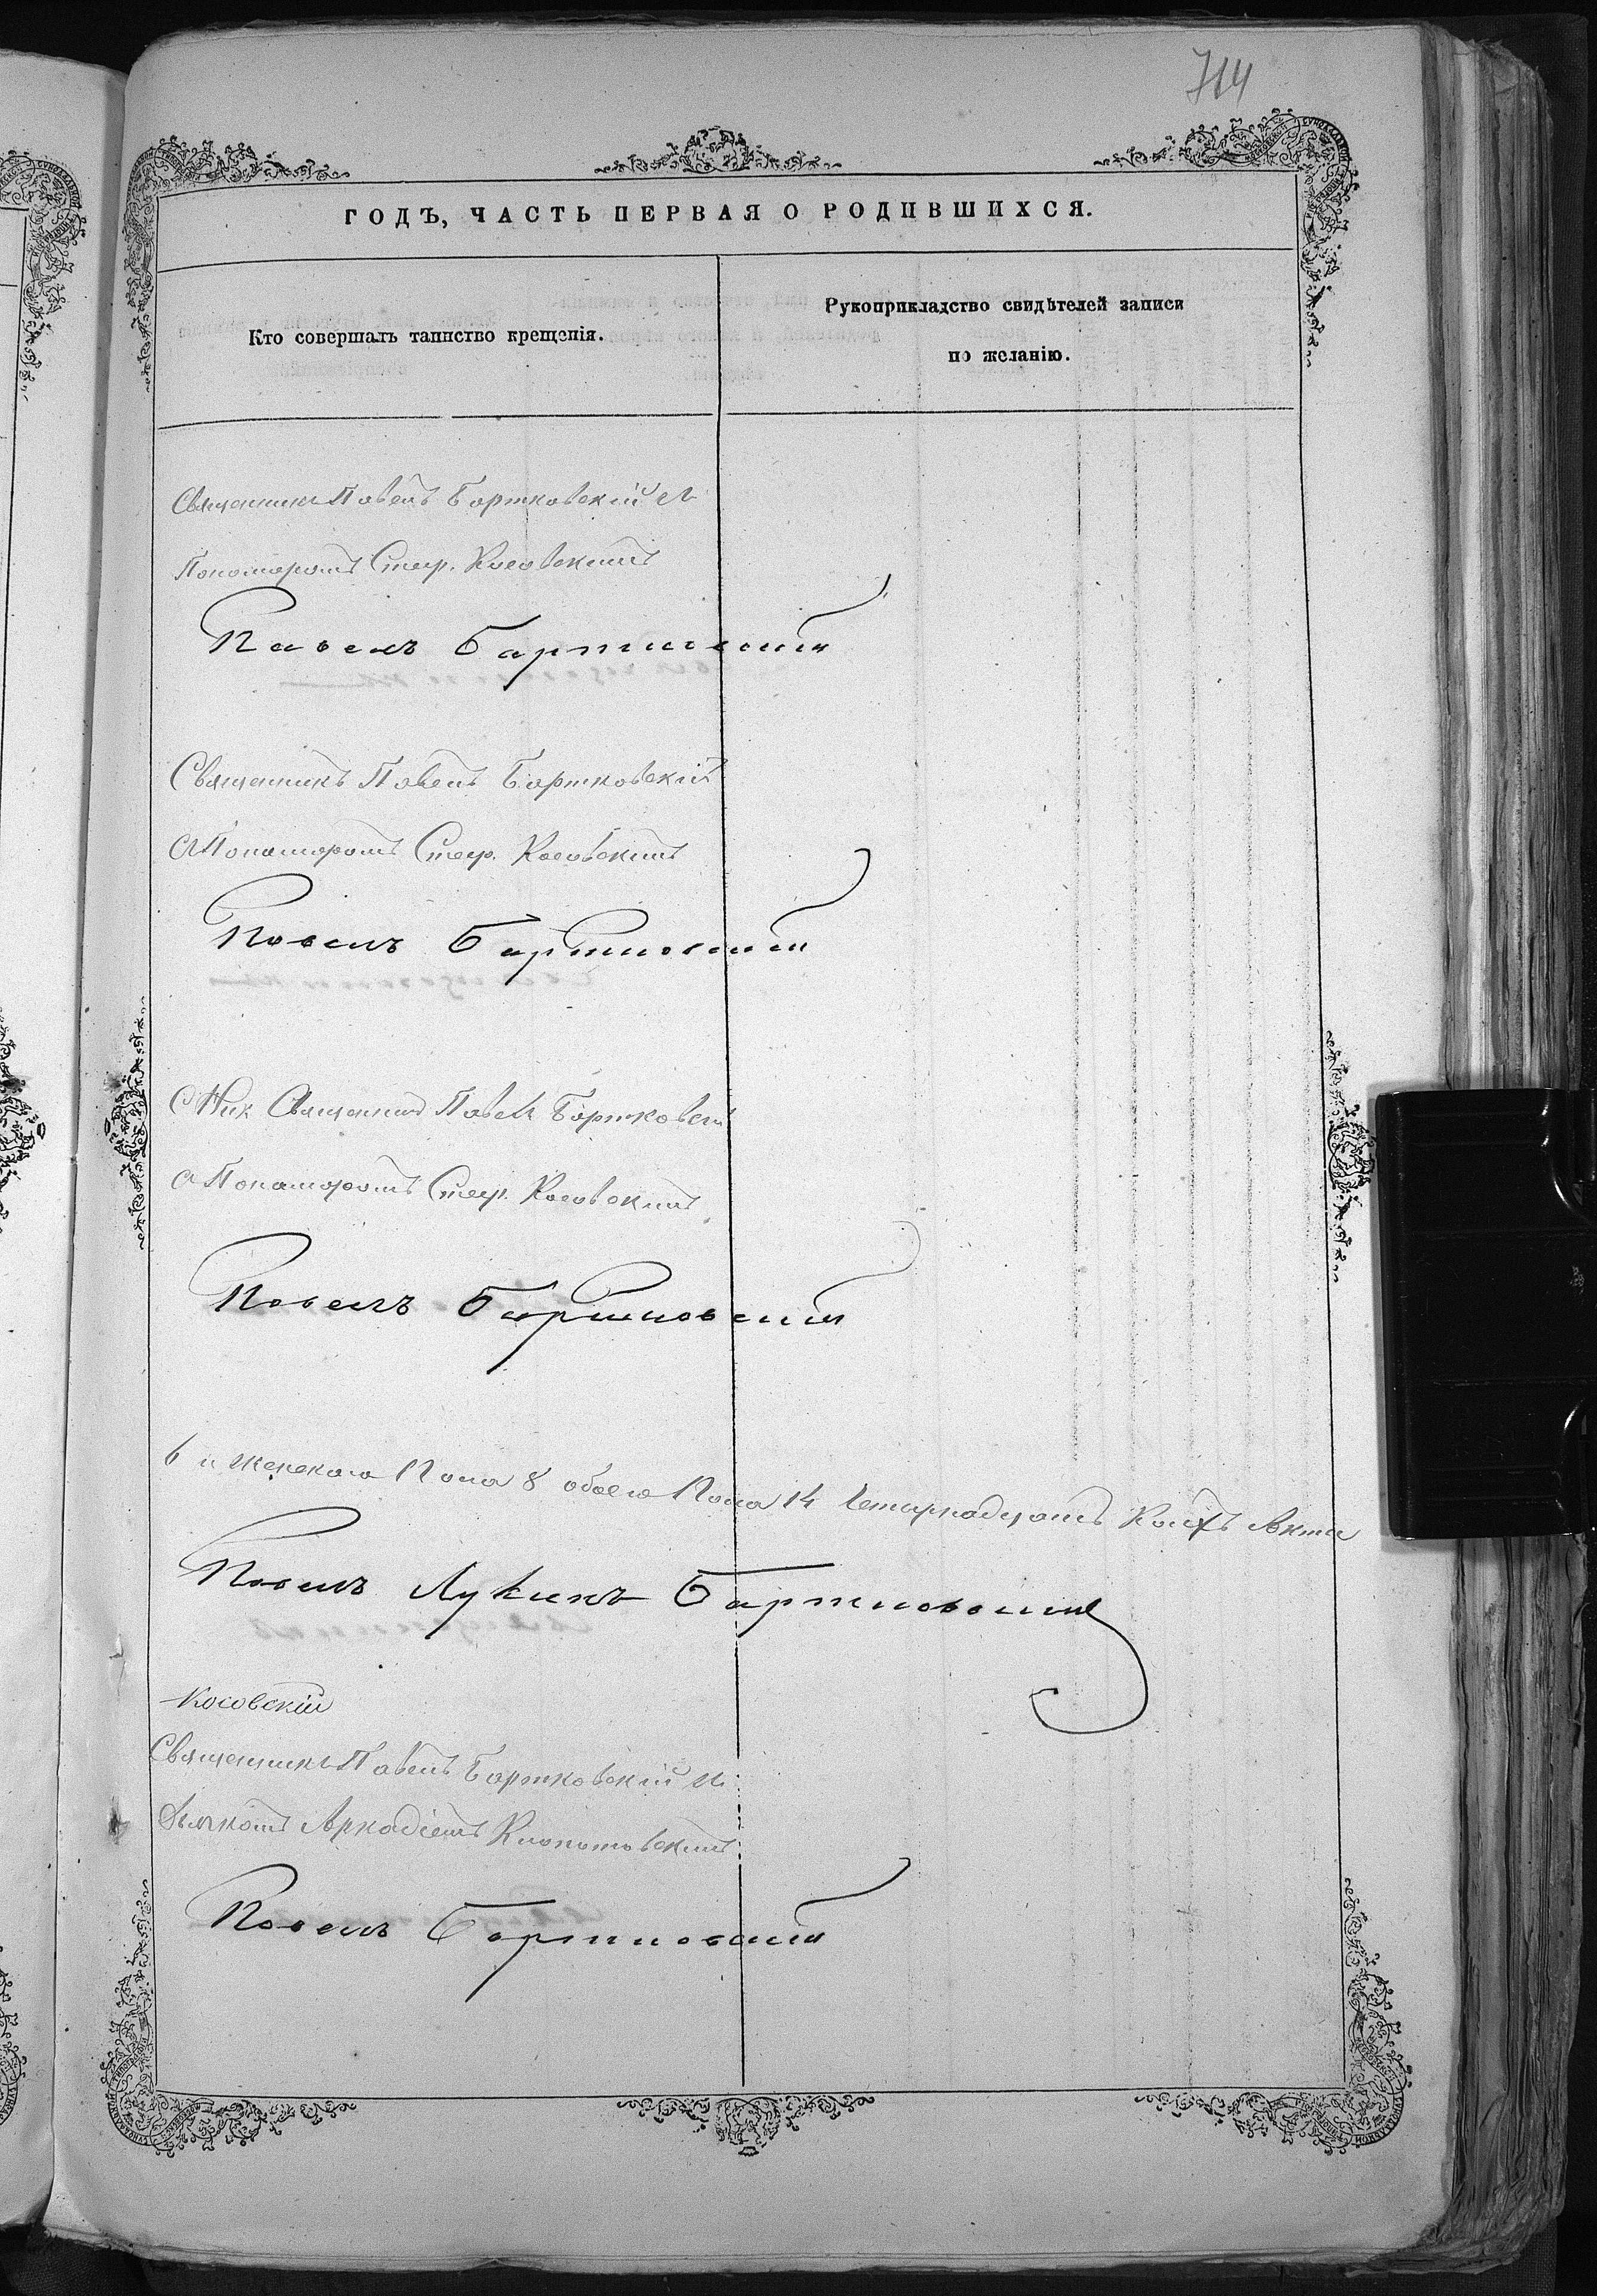 714
ГОДЪ, ЧАСТЬ ПЕРВАЯ О РОДИВШИХСЯ.
Кто совершалъ таинство крещенія.
Рукоприкладство свидѣтелей записи
по желанію.
Священникъ Павелъ Бартковскій И
Пономаромъ Стеф. Косовскимъ
Павелъ Бартковскій
Священникъ Павелъ Бартковскій
с Пономаромъ Стеф. Косовскимъ
Павелъ Бартковскій
Священник Павелъ Бартковскій
с Пономаромъ Стеф. Косовскимъ
Павелъ Бартковскій
6 и женского Пола 8 обоего Пола 14 Четырнадцать
Павелъ Лукинъ Бартковскій
Косовскій
Священникъ Павелъ Бартковскій И
Дьякомъ Аркадіемъ Клопотовскимъ
Павелъ Бартковскій